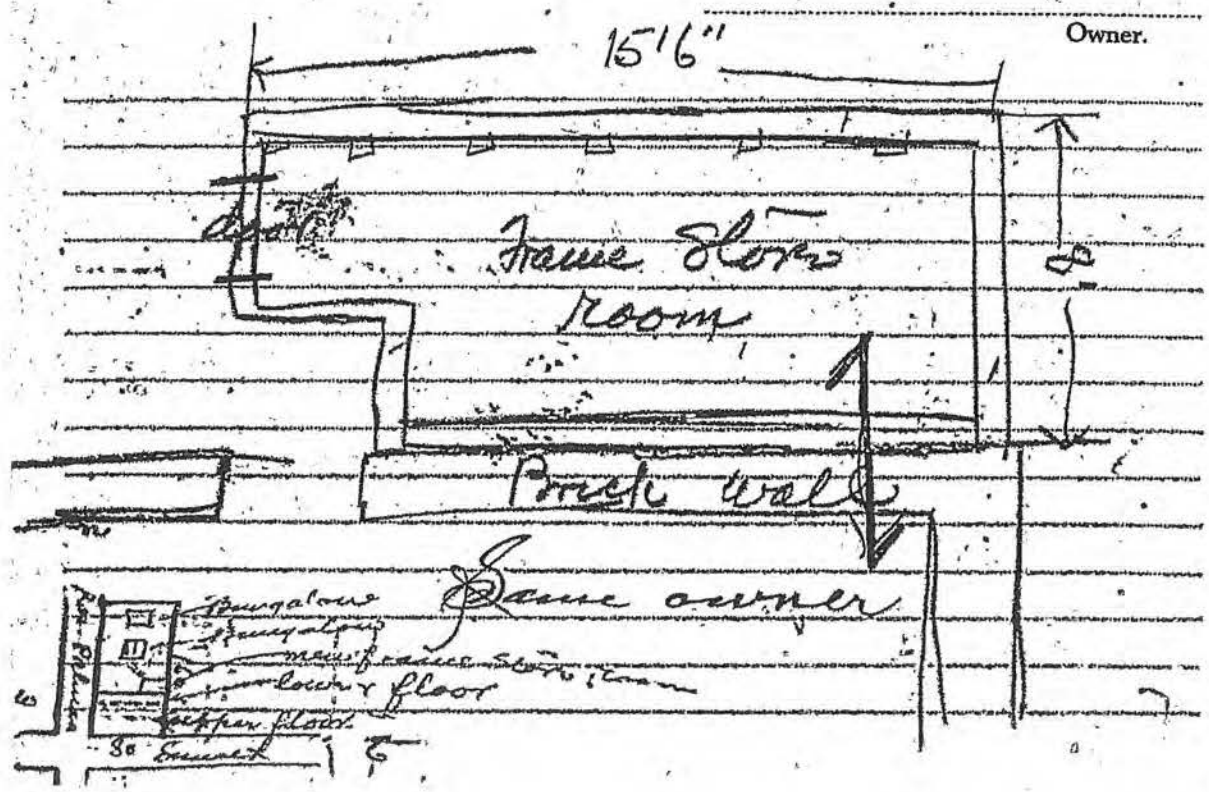 Owner.
15'6"
door
Frame Store
room
8'
Brick wall
Same owner
Bungalow
Bungalow
new frame store room
lower floor
upper floor
Las Palmas
80
Sunset